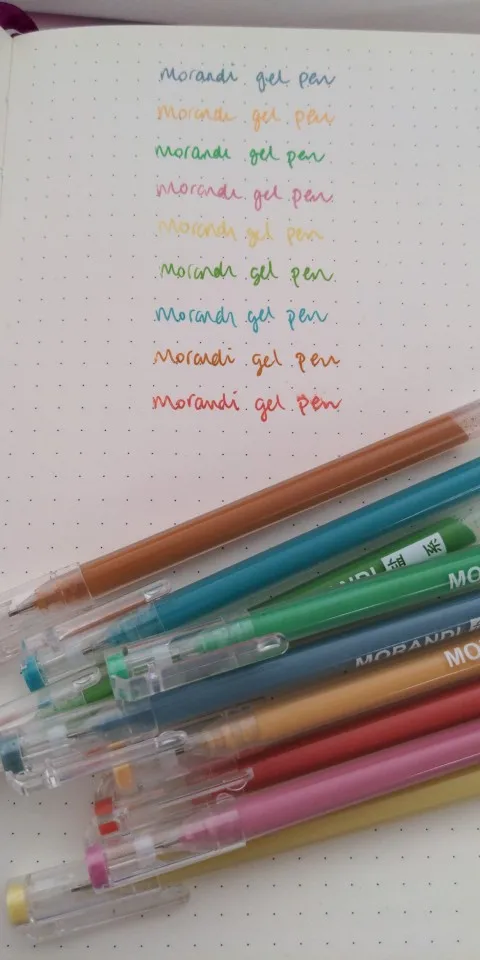 Morandi gel pen
Morandi gel pen
Morandi gel pen
Morandi gel pen
Morandi gel pen
Morandi gel pen
Morandi gel pen
Morandi gel pen
Morandi gel pen
MO
MORANDI
MO